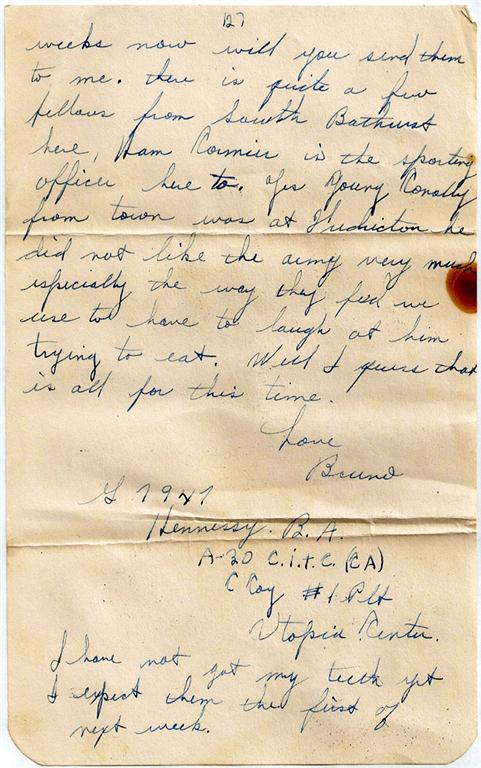 127
weeks now will you send them
to me. there is quite a few
fellows from South Bathurst
here, Ham Cormier is the sporting
officer here to. Yes Young Conolly
from town was at Fredricton he
did not like the army very much
especially the way they fed we
use to have to laugh at him
trying to eat. Well I guess that
is all for this time.
Love
Bruno
Hennessy. B. A.
A-30 C.I.T.C. (CA)
C Coy #1 Plt
Utopia Centre.
I have not got my teeth yet
I expect them the first of
next week.